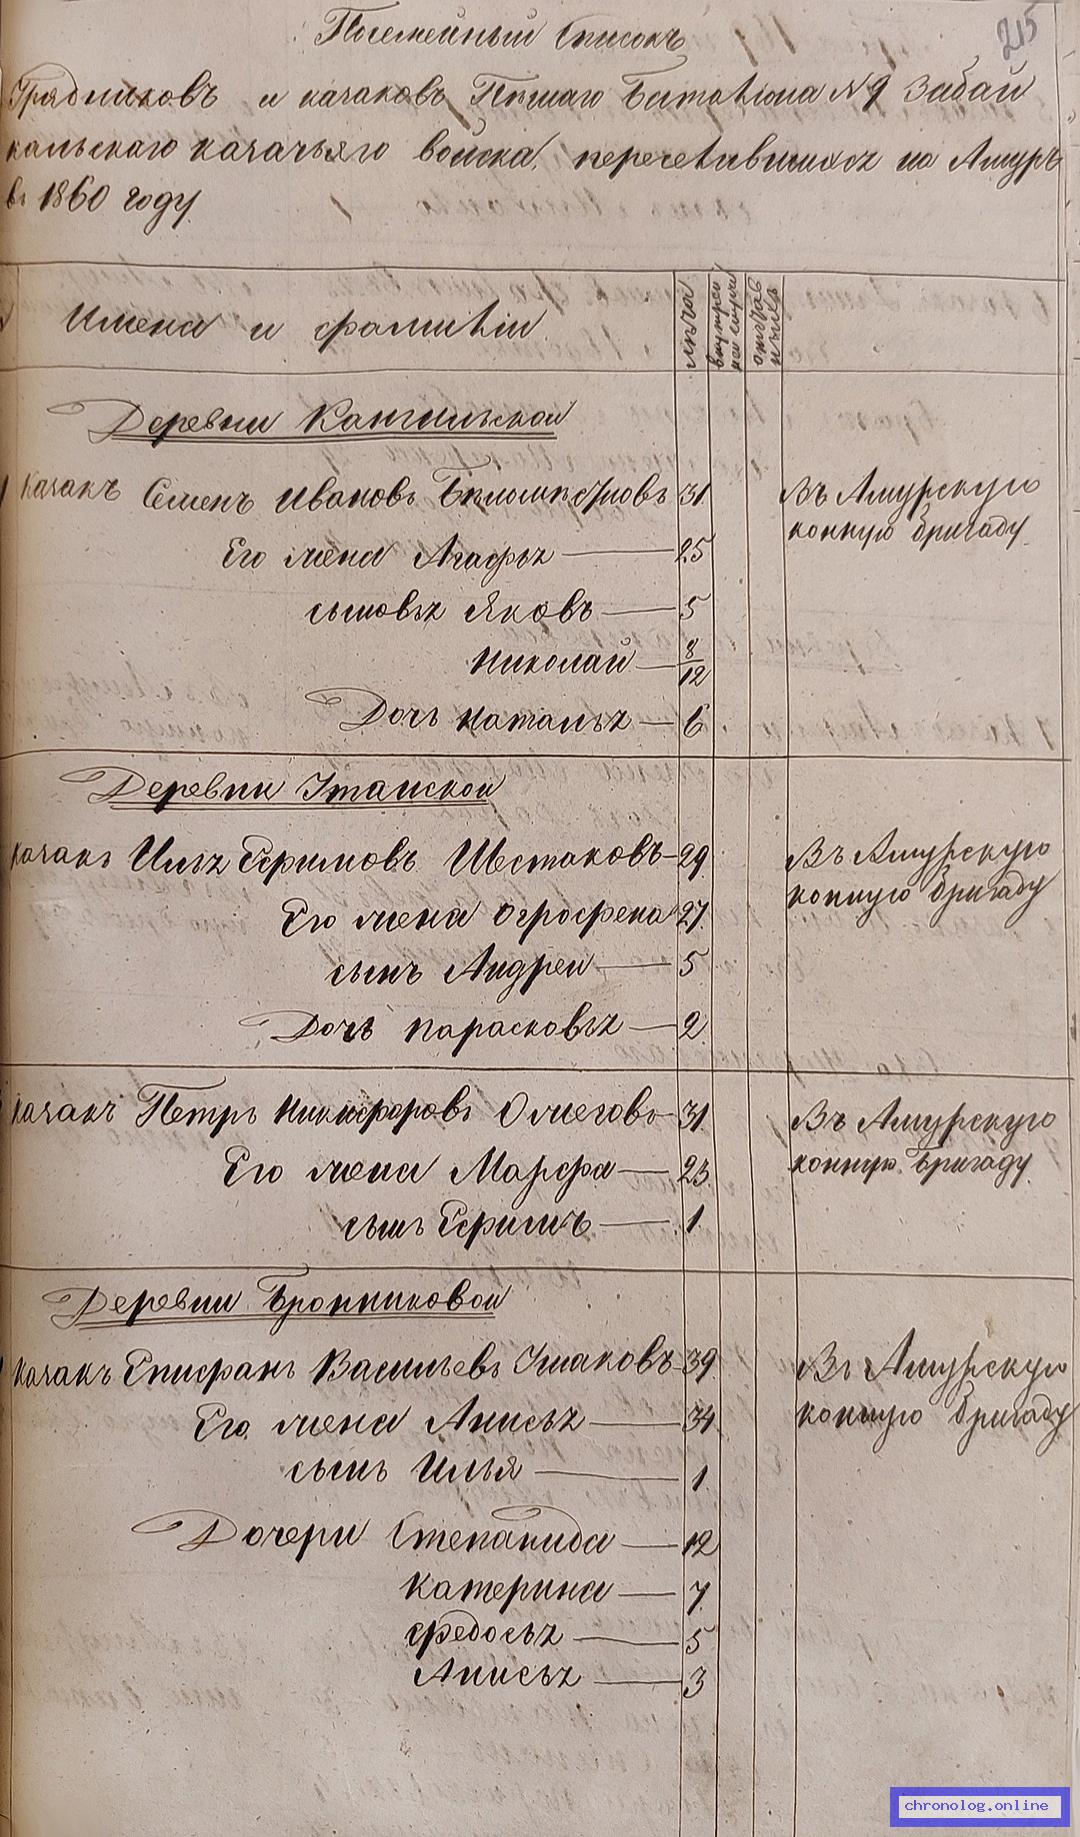 215
Посемейный Списокъ
Урядниковъ и казаковъ Пѣшаго Баталіона №9 Забай
кальскаго казачьяго войска, переселившихся на Амуръ
въ 1860 году.
Имена и фамиліи
лѣта
внутрен
ней служ
отстав
ныхъ
Деревни Кангильской
казакъ Семенъ Ивановъ 31
Его жена Агафья 25
сыновья Яковъ 5
Николай 8/12
Дочь Наталья 6
Въ Амурскую
конную бригаду
Деревни Утанской
казакъ Илья Ефимовъ Шестаковъ 29
Его жена Огрофена 27
сынъ Андрей 5
Дочь Парасковья 2
Въ Амурскую
конную бригаду
казакъ Петръ Никифоровъ Ожеговъ 31
Его жена Марфа 23
сынъ Ефимъ 1
Въ Амурскую
конную бригаду
Деревни Бронниковой
казакъ Епифанъ Васильевъ Ушаковъ 39
Его жена Анисья 34
сынъ Илья 1
Дочери Степанида 12
Катерина 7
Федосья 5
Анисья 3
Въ Амурскую
конную бригаду
chronolog.online